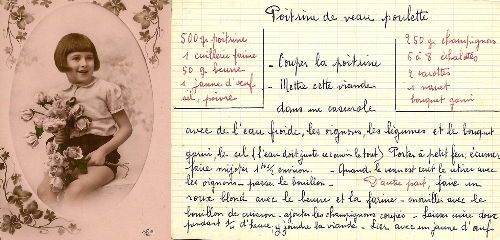 Poitrine de veau poulette
500 gr poitrine
1 cuillère farine
50 gr beurre
1 jaune d'œuf
sel, poivre
- Couper la poitrine
- Mettre cette viande
dans une casserole
250 gr champignons
5 à 8 échalottes
2 carottes
1 navet
bouquet garni
avec de l'eau froide, les oignons, les légumes et le bouquet
garni, le sel (l'eau doit juste recouvrir le tout) Porter à petit feu, écumer
- faire mijoter environ. - Quand le veau est cuit le retirer avec
les oignons - passer le bouillon. - D'autre part, faire un
roux blond avec le beurre et la farine - mouiller avec le
bouillon de cuisson - ajouter les champignons coupés - Laisser cuire doux
pendant d'heure, y joindre la viande - Lier avec un jaune d'œuf